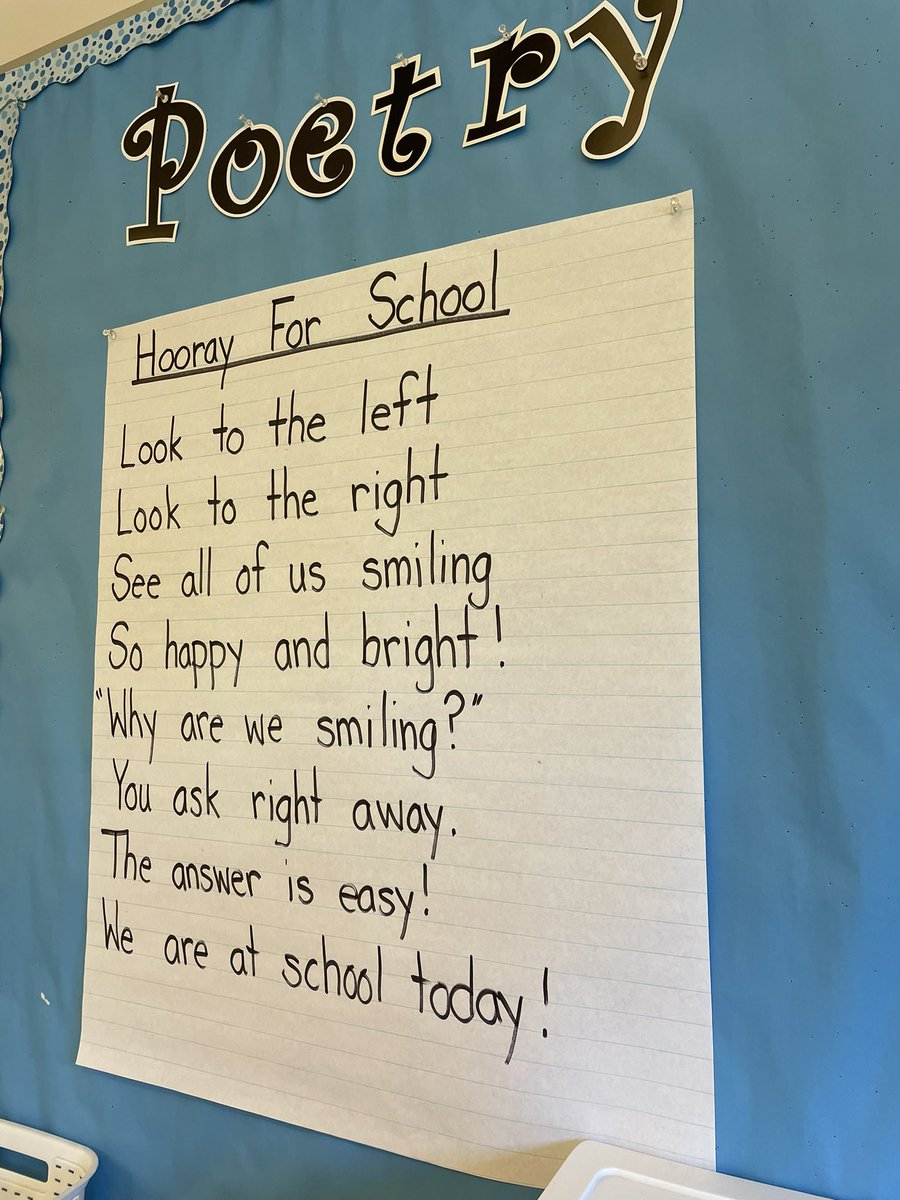 Poetry
Hooray For School
Look to the left
Look to the right
See all of us smiling
So happy and bright!
"Why are we smiling?"
You ask right away.
The answer is easy!
We are at school today!